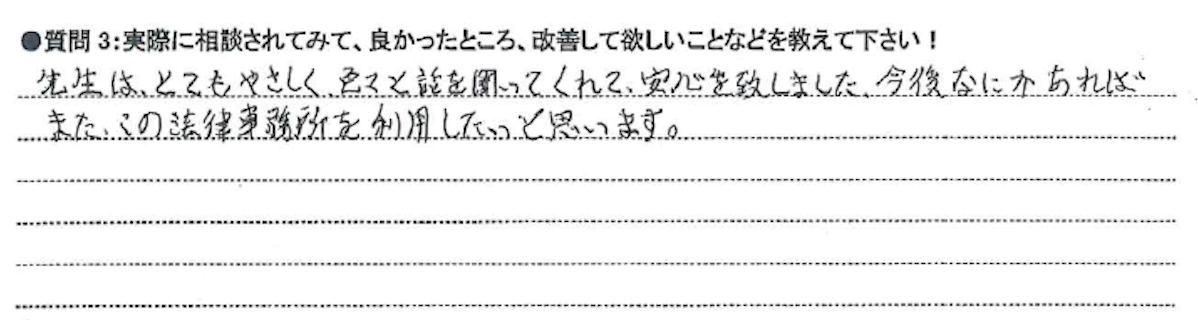 ●質問3:実際に相談されてみて、良かったところ、改善して欲しいことなどを教えて下さい!
先生は、とてもやさしく、色々と話を聞いてくれて、安心を致しました。今後なにかあれば
また、この法律事務所を利用したいと思います。